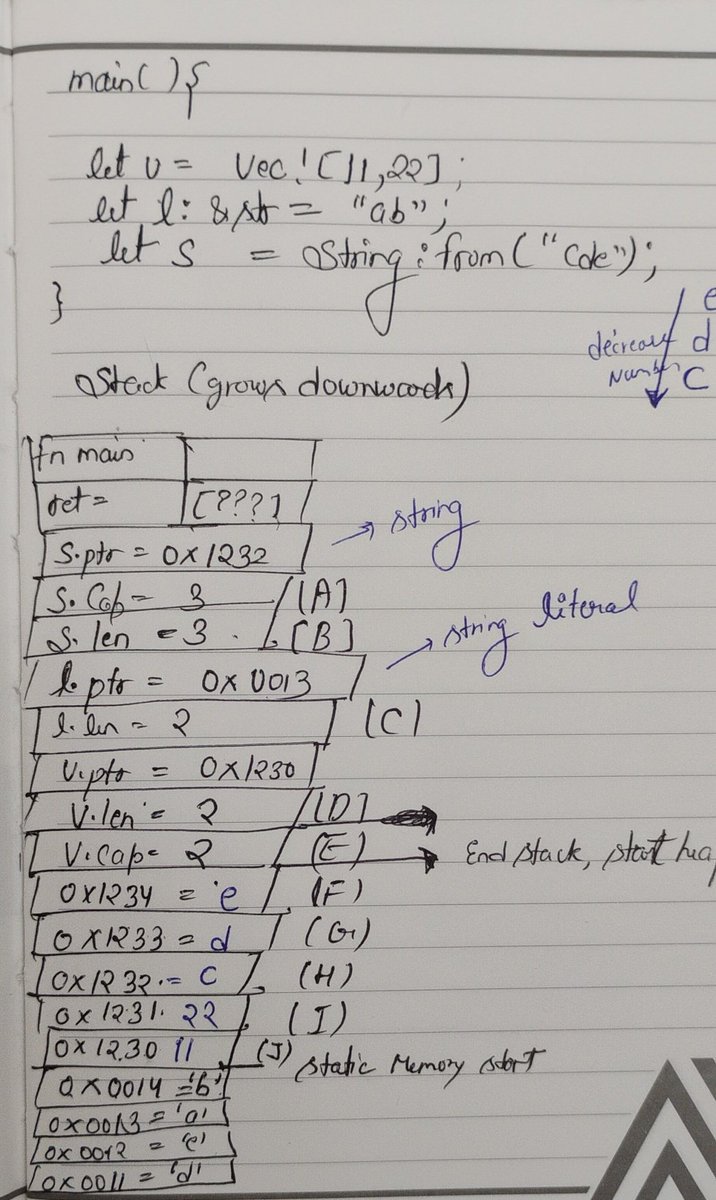 main() {
let v = Vec![11,22];
let l: &str = "ab";
let s = String:from("Cde");
}
e
decrease d
Number C
Stack (grows downwards)
fn main
ret = [???]
S.ptr = 0x1232 → string
S.Cap = 3 [A]
S.len = 3 . [B]
l.ptr = 0x0013 → string literal
l.len = 2 [C]
V.ptr = 0x1230
V.len = 2 [D]
V.cap = 2 (E) End stack, start heap
0x1234 = e (F)
0x1233 = d (G)
0x1232 = C (H)
0x1231. 22 (I)
0x1230 11 (J) Static Memory start
0x0014 = 'b'
0x0013 = 'a'
0x0012 = 'e'
0x0011 = 'd'